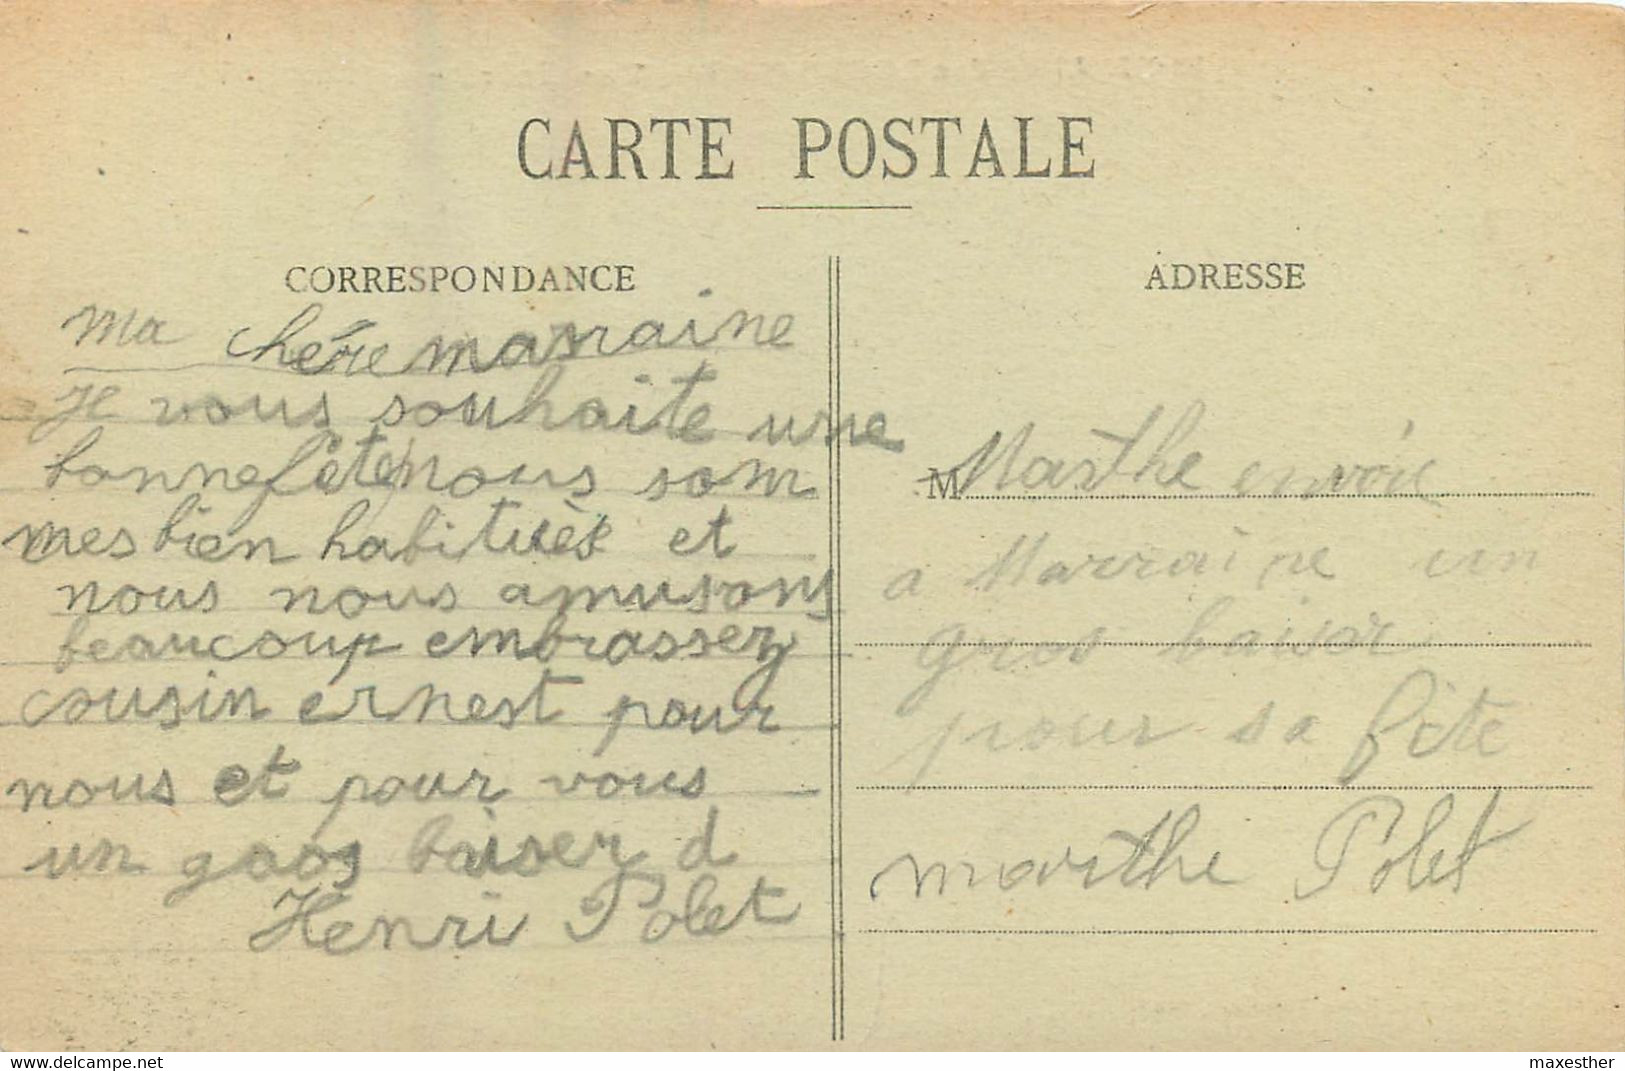 CARTE POSTALE
CORRESPONDANCE
Ma chère marraine
je vous souhaite une
bonne fête nous som
mes bien habitués et
nous nous amusons
beaucoup embrassez
cousin ernest pour
nous et pour vous
un gros baiser d
Henri Polet
ADRESSE
M Marthe envoie
a Marraine un
gros baiser
pour sa fête
marthe Polet
www.delcampe.net
maxesther